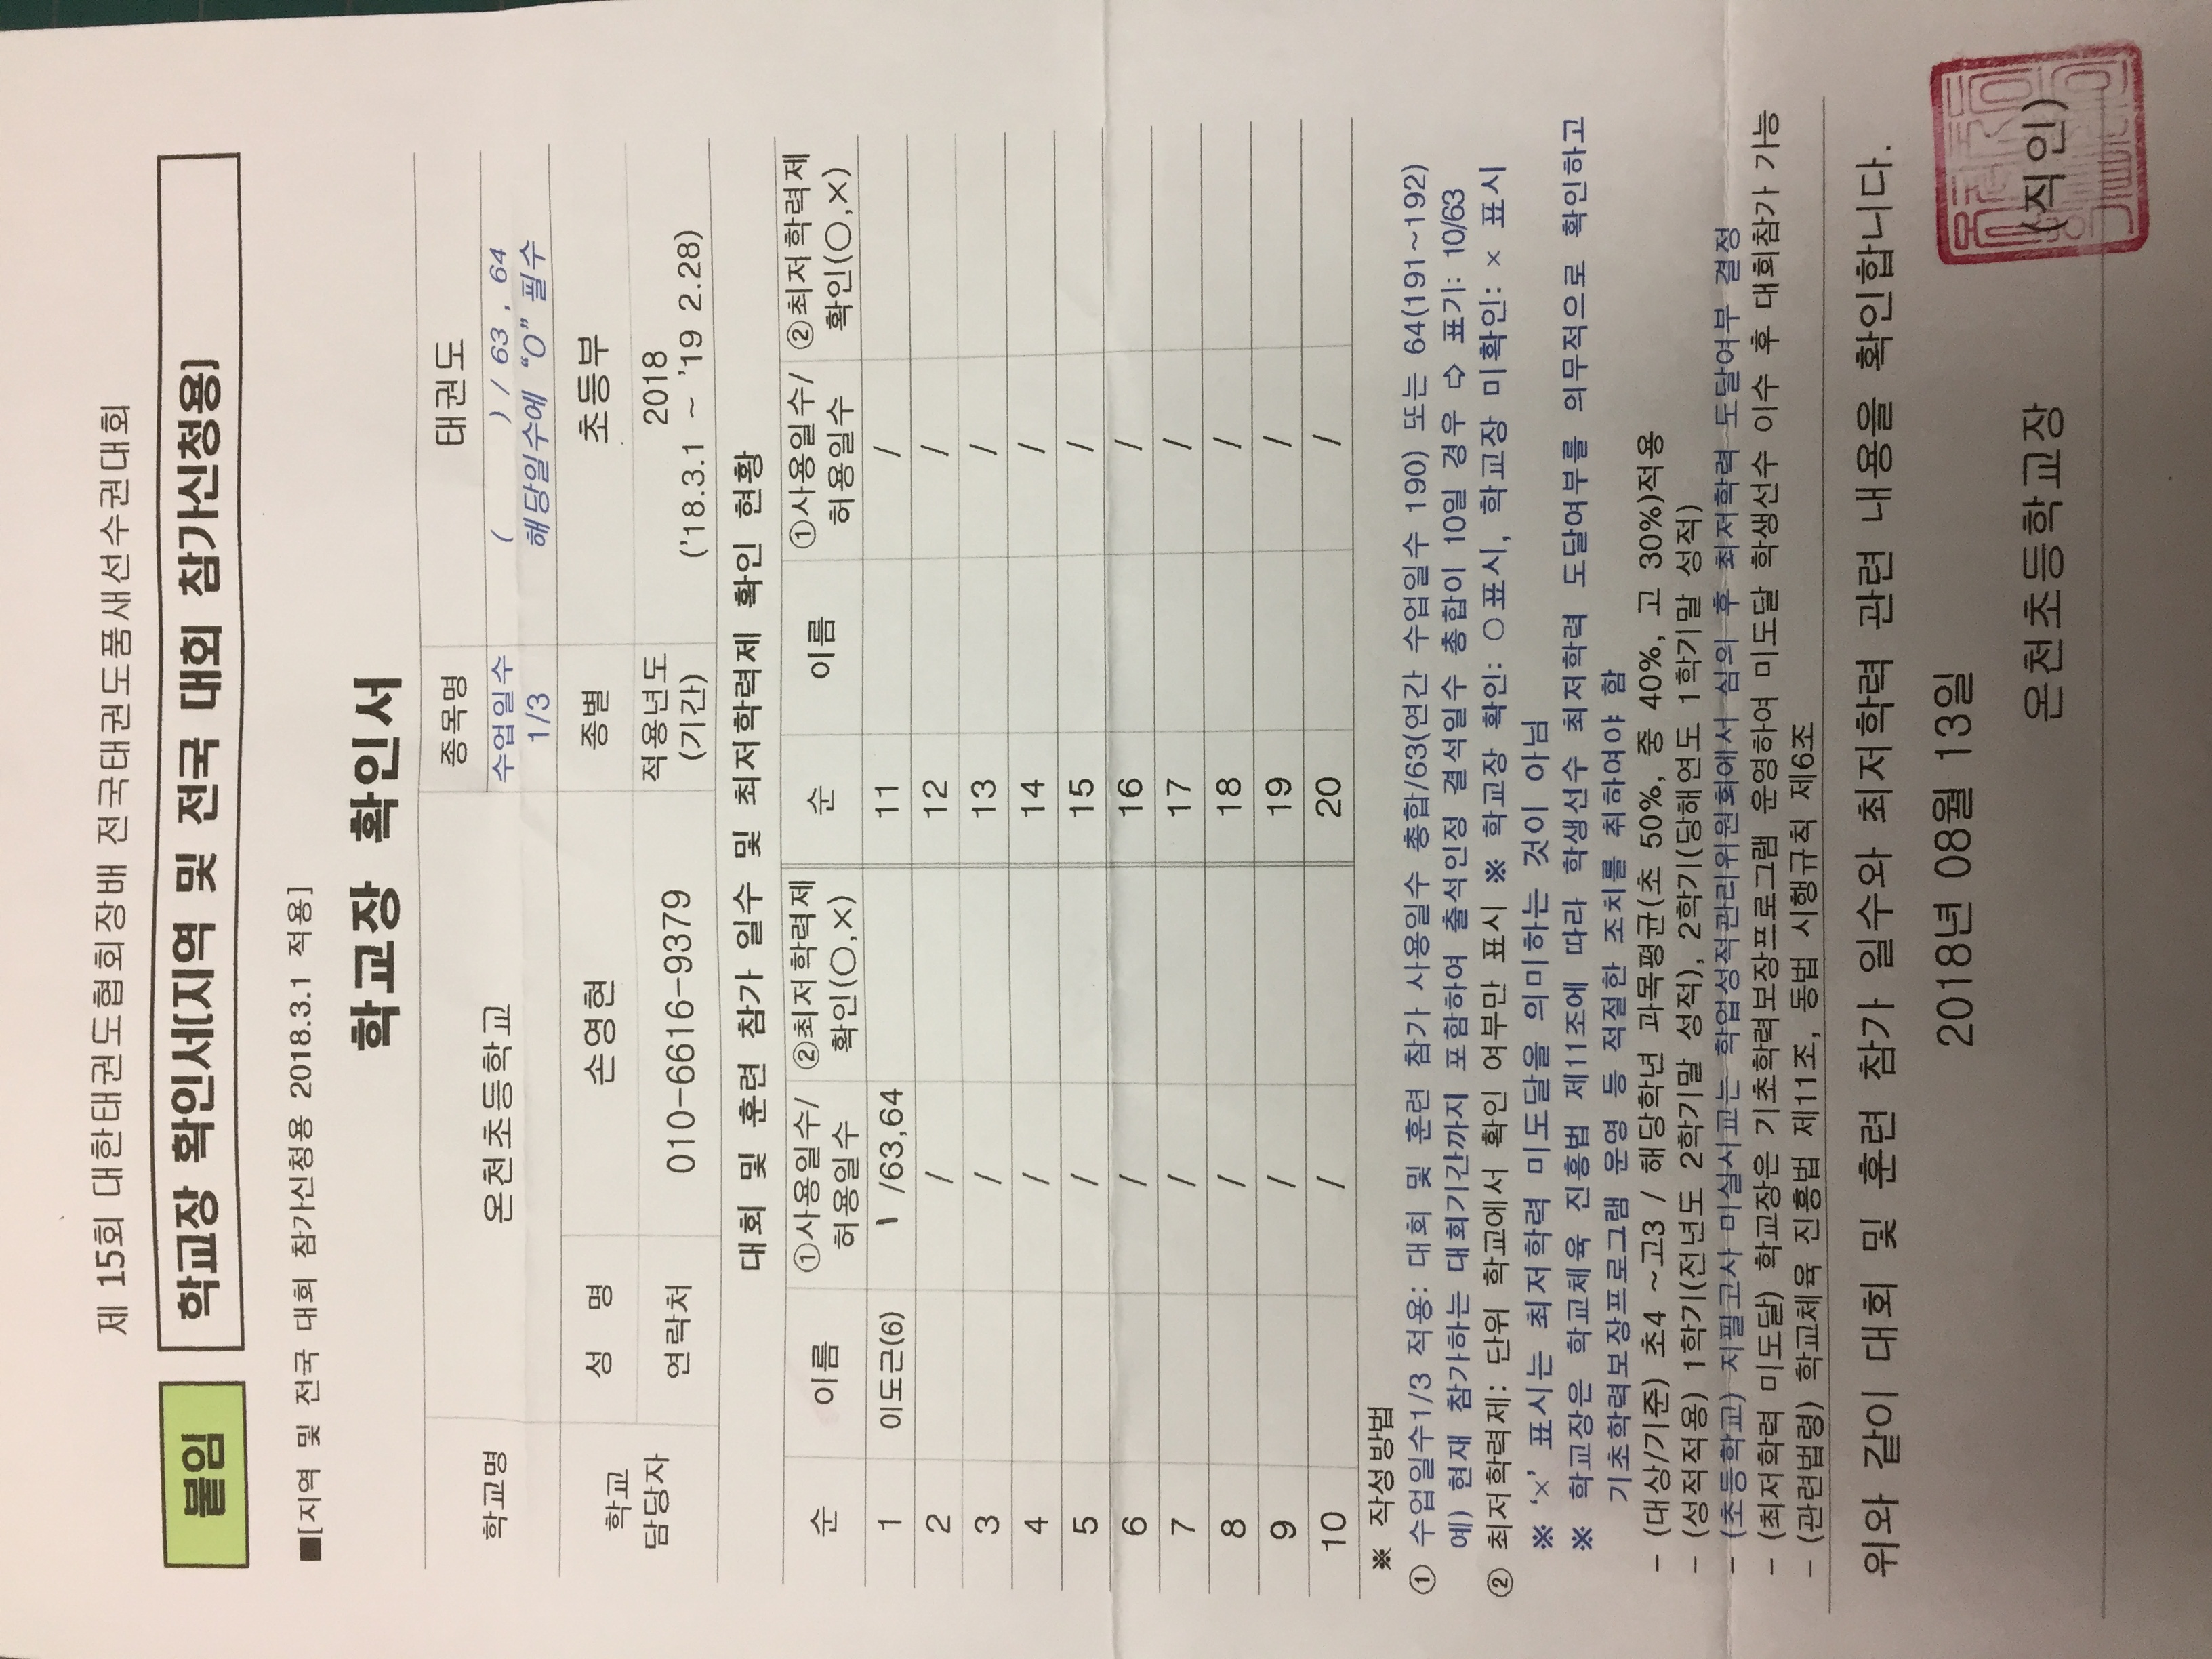 제 15회 대한태권도협회장배 전국태권도품새선수권대회
붙임 학교장 확인서(지역 및 전국 대회 참가신청용)
■[지역 및 전국 대회 참가신청용 2018.3.1 적용]
학교장 확인서
학교명 온천초등학교 종목명 태권도
수업일수 1/3 ( ) / 63 , 64
해당일수에 "O" 필수
학교 담당자 성 명 손영현 종별 초등부
연락처 010-6616-9379 적용년도 (기간) 2018
('18.3.1 ~ '19 2.28)
대회 및 훈련 참가 일수 및 최저학력제 확인 현황
순 이름 ①사용일수/ 허용일수 ②최저학력제 확인(○,×) 순 이름 ①사용일수/ 허용일수 ②최저학력제 확인(○,×)
1 이도근(6) 1 /63,64 11 /
2 / 12 /
3 / 13 /
4 / 14 /
5 / 15 /
6 / 16 /
7 / 17 /
8 / 18 /
9 / 19 /
10 / 20 /
※ 작성방법
① 수업일수1/3 적용: 대회 및 훈련 참가 사용일수 총합/63(연간 수업일수 190) 또는 64(191~192)
예) 현재 참가하는 대회기간까지 포함하여 출석인정 결석일수 총합이 10일 경우 ⇨ 표기: 10/63
② 최저학력제: 단위 학교에서 확인 여부만 표시 ※ 학교장 확인: ○표시, 학교장 미확인: × 표시
※ '×' 표시는 최저학력 미도달을 의미하는 것이 아님
※ 학교장은 학교체육 진흥법 제11조에 따라 학생선수 최저학력 도달여부를 의무적으로 확인하고
기초학력보장프로그램 운영 등 적절한 조치를 취하여야 함
- (대상/기준) 초4 ~고3 / 해당학년 과목평균(초 50%, 중 40%, 고 30%)적용
- (성적적용) 1학기(전년도 2학기말 성적), 2학기(당해연도 1학기말 성적)
- (초등학교) 지필고사 미실시교는 학업성적관리위원회에서 심의 후 최저학력 도달여부 결정
- (최저학력 미도달) 학교장은 기초학력보장프로그램 운영하여 미도달 학생선수 이수 후 대회참가 가능
- (관련법령) 학교체육 진흥법 제11조, 동법 시행규칙 제6조
위와 같이 대회 및 훈련 참가 일수와 최저학력 관련 내용을 확인합니다.
2018년 08월 13일
온천초등학교장 (직인)